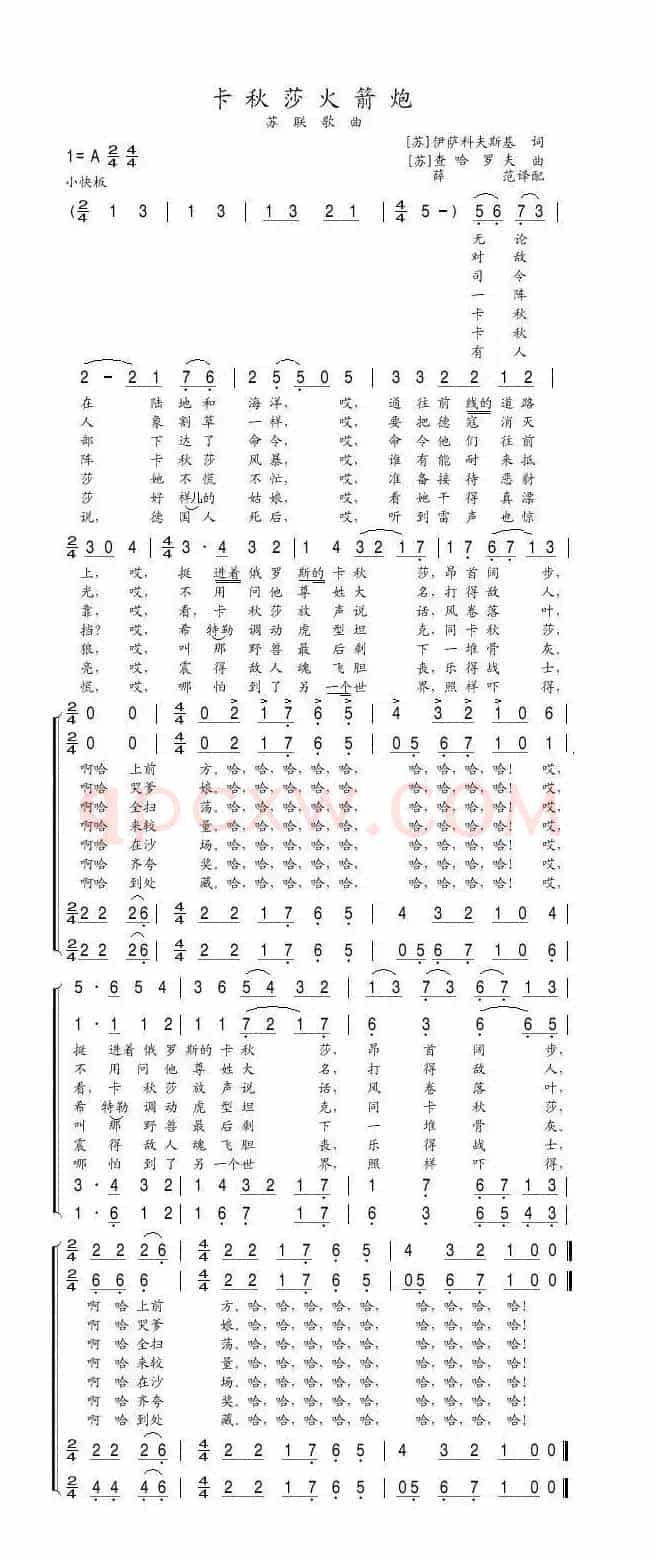 卡秋莎火箭炮
苏联歌曲
[苏]伊萨科夫斯基 词
1=A 2/4 4/4
[苏]查哈罗夫 曲
小快板
薛范译配
(2/4 1 3 | 1 3 | 1 3 2 1 | 4/4 5 -) 5 6 7 3 |
无论
对敌
司令
一阵
卡秋
卡秋
有人
2 - 2 1 7 6 | 2 5 5 0 5 | 3 3 2 2 1 2 |
在陆地和海洋,哎,通往前线的道路
人象割草一样,哎,要把德寇消灭
部下达了命令,哎,命令他们往前
阵卡秋莎风暴,哎,谁有能耐来抵
莎她不慌不忙,哎,准备接待恶尉
莎好样儿的姑娘,哎,看她干得真漂
说,德国人死后,哎,听到雷声也惊
2/4 3 0 4 | 4/4 3 · 4 3 2 | 1 4 3 2 1 7 | 1 7 6 7 1 3 |
上,哎,挺进着俄罗斯的卡秋莎,昂首阔步,
光,哎,不用问他尊姓大名,打得敌人,
靠,哎,看,卡秋莎放声说话,风卷落叶,
挡?哎,希特勒调动虎型坦克,同卡秋莎,
狼,哎,叫那野兽最后剩下一堆骨灰,
亮,哎,震得敌人魂飞胆丧,乐得战士,
慌,哎,哪怕到了另一个世界,照样吓得,
2/4 0 0 | 4/4 0 2 1 7 6 5 | 4 3 2 1 0 6 |
0 0 | 0 2 1 7 6 5 | 0 5 6 7 1 0 1 |
啊哈上前方,哈,哈,哈,哈,哈,哈,哈,哈!哎,
啊哈哭爹娘,哈,哈,哈,哈,哈,哈,哈,哈!哎,
啊哈全扫荡,哈,哈,哈,哈,哈,哈,哈,哈!哎,
啊哈来较量,哈,哈,哈,哈,哈,哈,哈,哈!哎,
啊哈在沙场,哈,哈,哈,哈,哈,哈,哈,哈!哎,
啊哈齐夸奖,哈,哈,哈,哈,哈,哈,哈,哈!哎,
啊哈到处藏,哈,哈,哈,哈,哈,哈,哈,哈!哎,
2/4 2 2 2 6 | 4/4 2 2 1 7 6 5 | 4 3 2 1 0 4 |
2/4 2 2 2 6 | 4/4 2 2 1 7 6 5 | 0 5 6 7 1 0 5 |
5 · 6 5 4 | 3 6 5 4 3 2 | 1 3 7 3 6 7 1 3 |
1 · 1 1 2 | 1 1 7 2 1 7 | 6 3 6 6 5 |
挺进着俄罗斯的卡秋莎,昂首阔步,
不用问他尊姓大名,打得敌人,
看,卡秋莎放声说话,风卷落叶,
希特勒调动虎型坦克,同卡秋莎,
叫那野兽最后剩下一堆骨灰、
震得敌人魂飞胆丧,乐得战士,
哪怕到了另一个世界,照样吓得,
3 · 4 3 2 | 1 4 3 2 1 7 | 1 7 6 7 1 3 |
1 · 6 1 2 | 1 6 7 1 7 | 6 3 6 5 4 3 |
2/4 2 2 2 6 | 4/4 2 2 1 7 6 5 | 4 3 2 1 0 0 ‖
2/4 6 6 6 | 4/4 2 2 1 7 6 5 | 0 5 6 7 1 0 0 ‖
啊哈上前方,哈,哈,哈,哈,哈,哈,哈,哈!
啊哈哭爹娘,哈,哈,哈,哈,哈,哈,哈,哈!
啊哈全扫荡,哈,哈,哈,哈,哈,哈,哈,哈!
啊哈来较量,哈,哈,哈,哈,哈,哈,哈,哈!
啊哈在沙场,哈,哈,哈,哈,哈,哈,哈,哈!
啊哈齐夸奖,哈,哈,哈,哈,哈,哈,哈,哈!
啊哈到处藏,哈,哈,哈,哈,哈,哈,哈,哈!
2/4 2 2 2 6 | 4/4 2 2 1 7 6 5 | 4 3 2 1 0 0 ‖
2/4 4 4 4 6 | 4/4 2 2 1 7 6 5 | 0 5 6 7 1 0 0 ‖